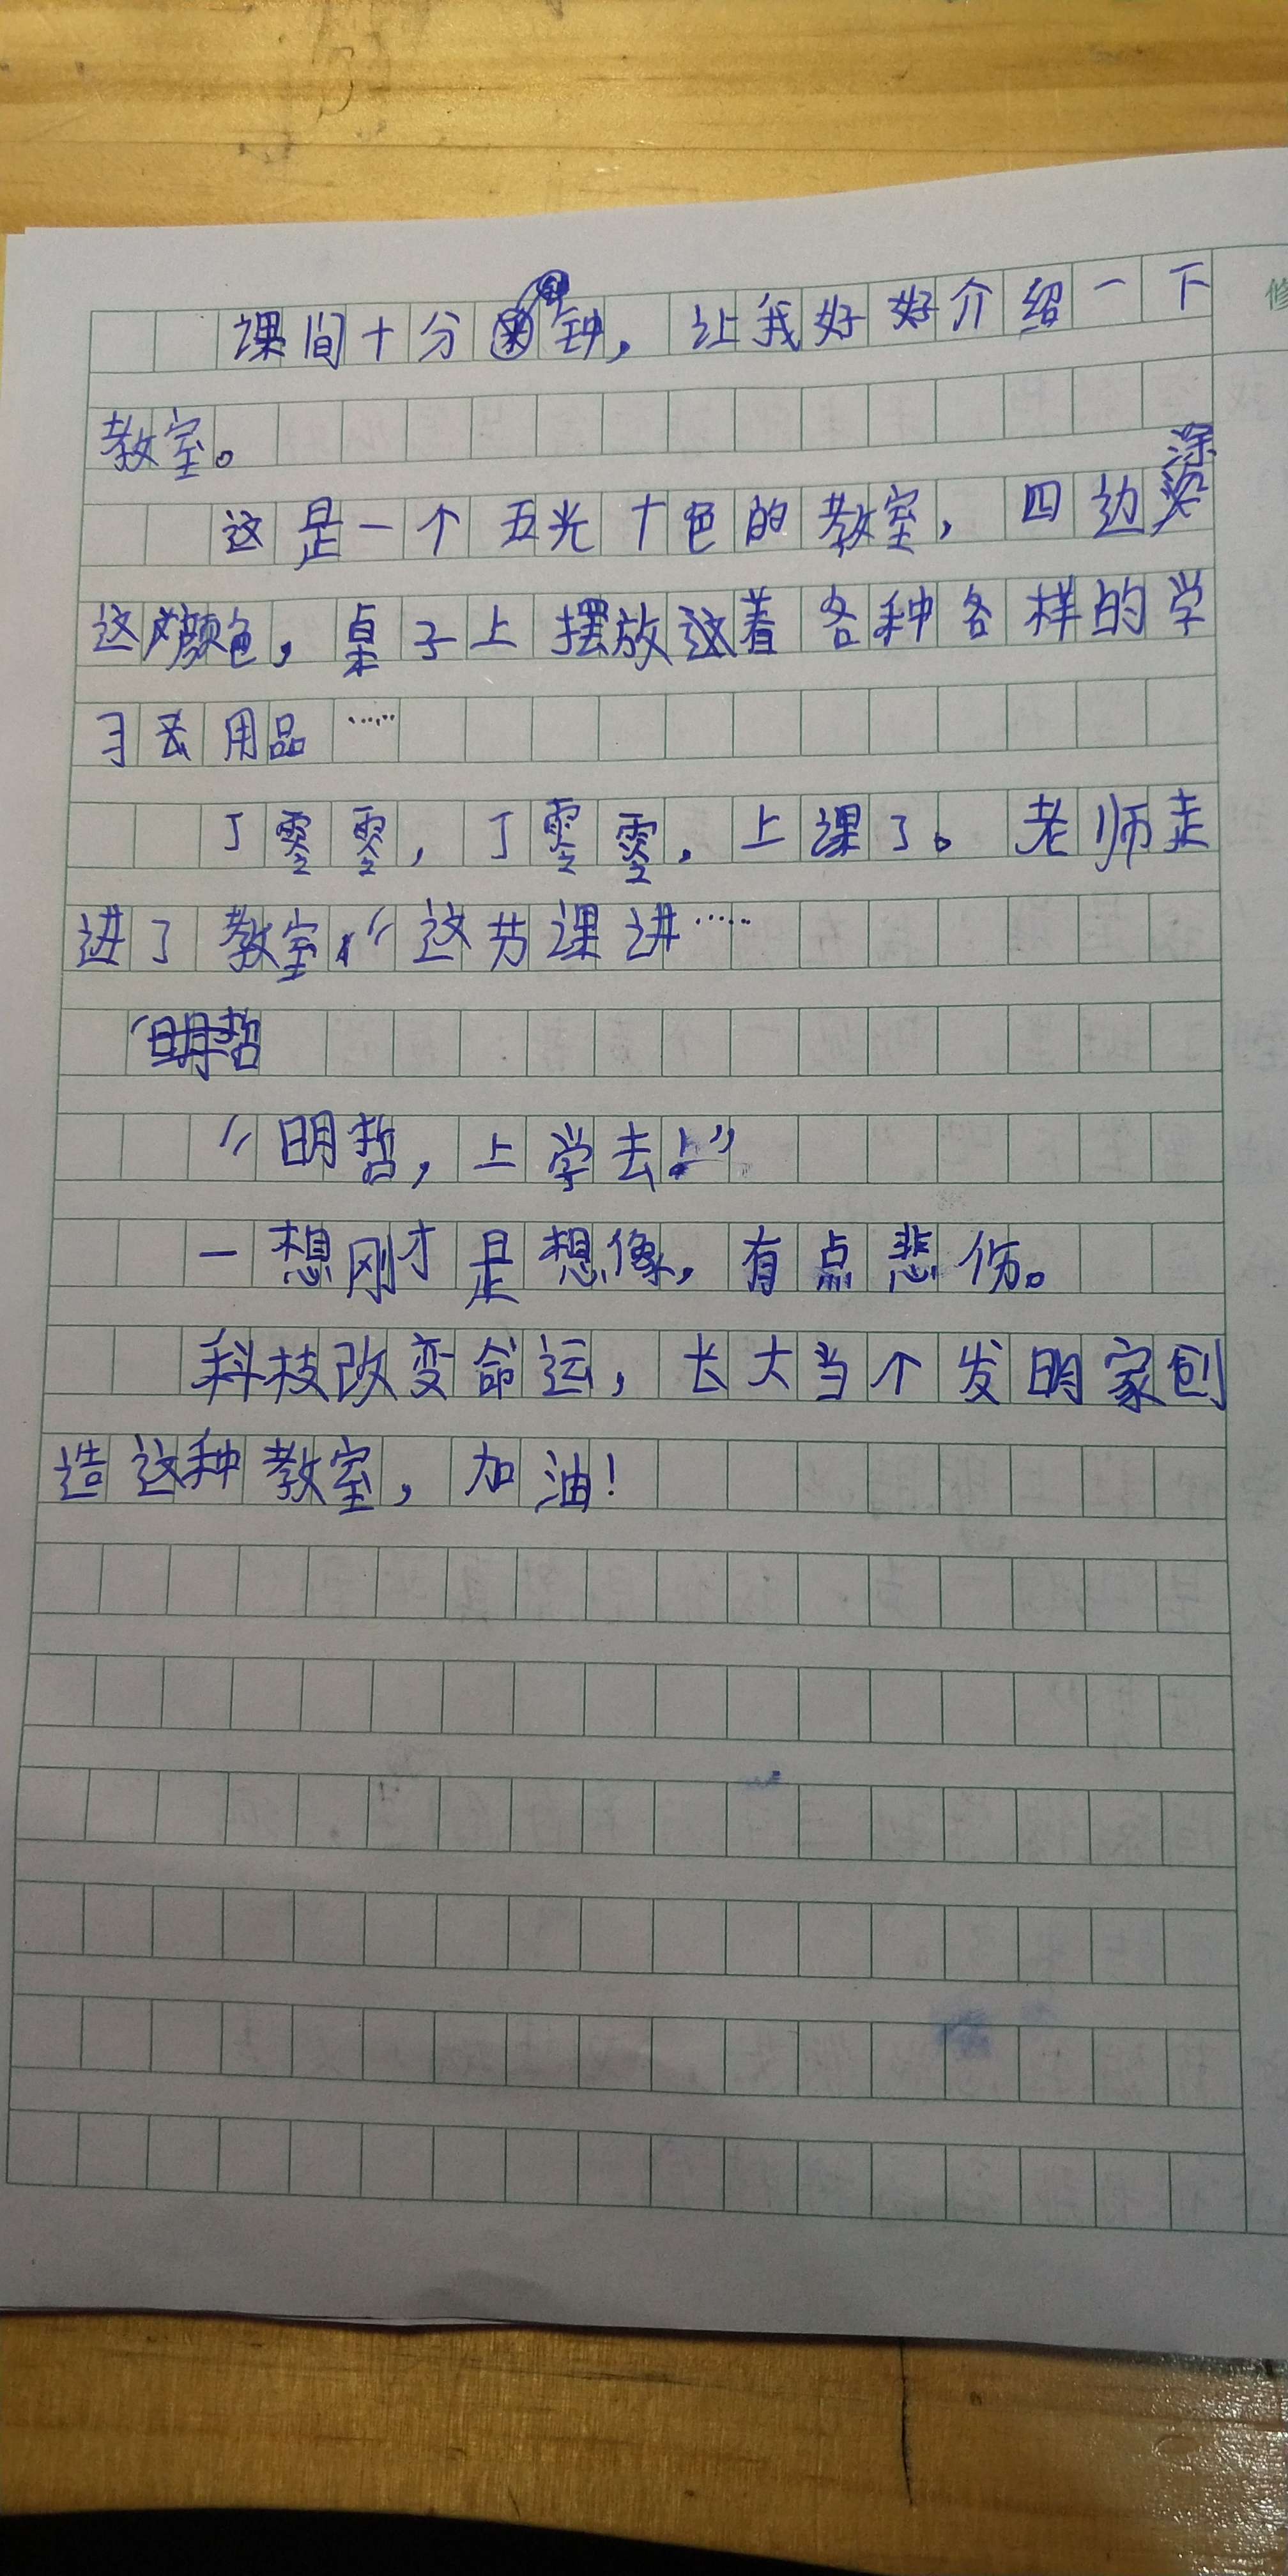 课间十分钟，让我好好介绍一下
教室。
这是一个五光十色的教室，四边涂
这颜色，桌子上摆放这着各种各样的学
习去用品……
丁零零，丁零零，上课了。老师走
进了教室，“这节课讲……
“明哲
“明哲，上学去！”
一想刚才是想像，有点悲伤。
科技改变命运，长大当个发明家创
造这种教室，加油！
修